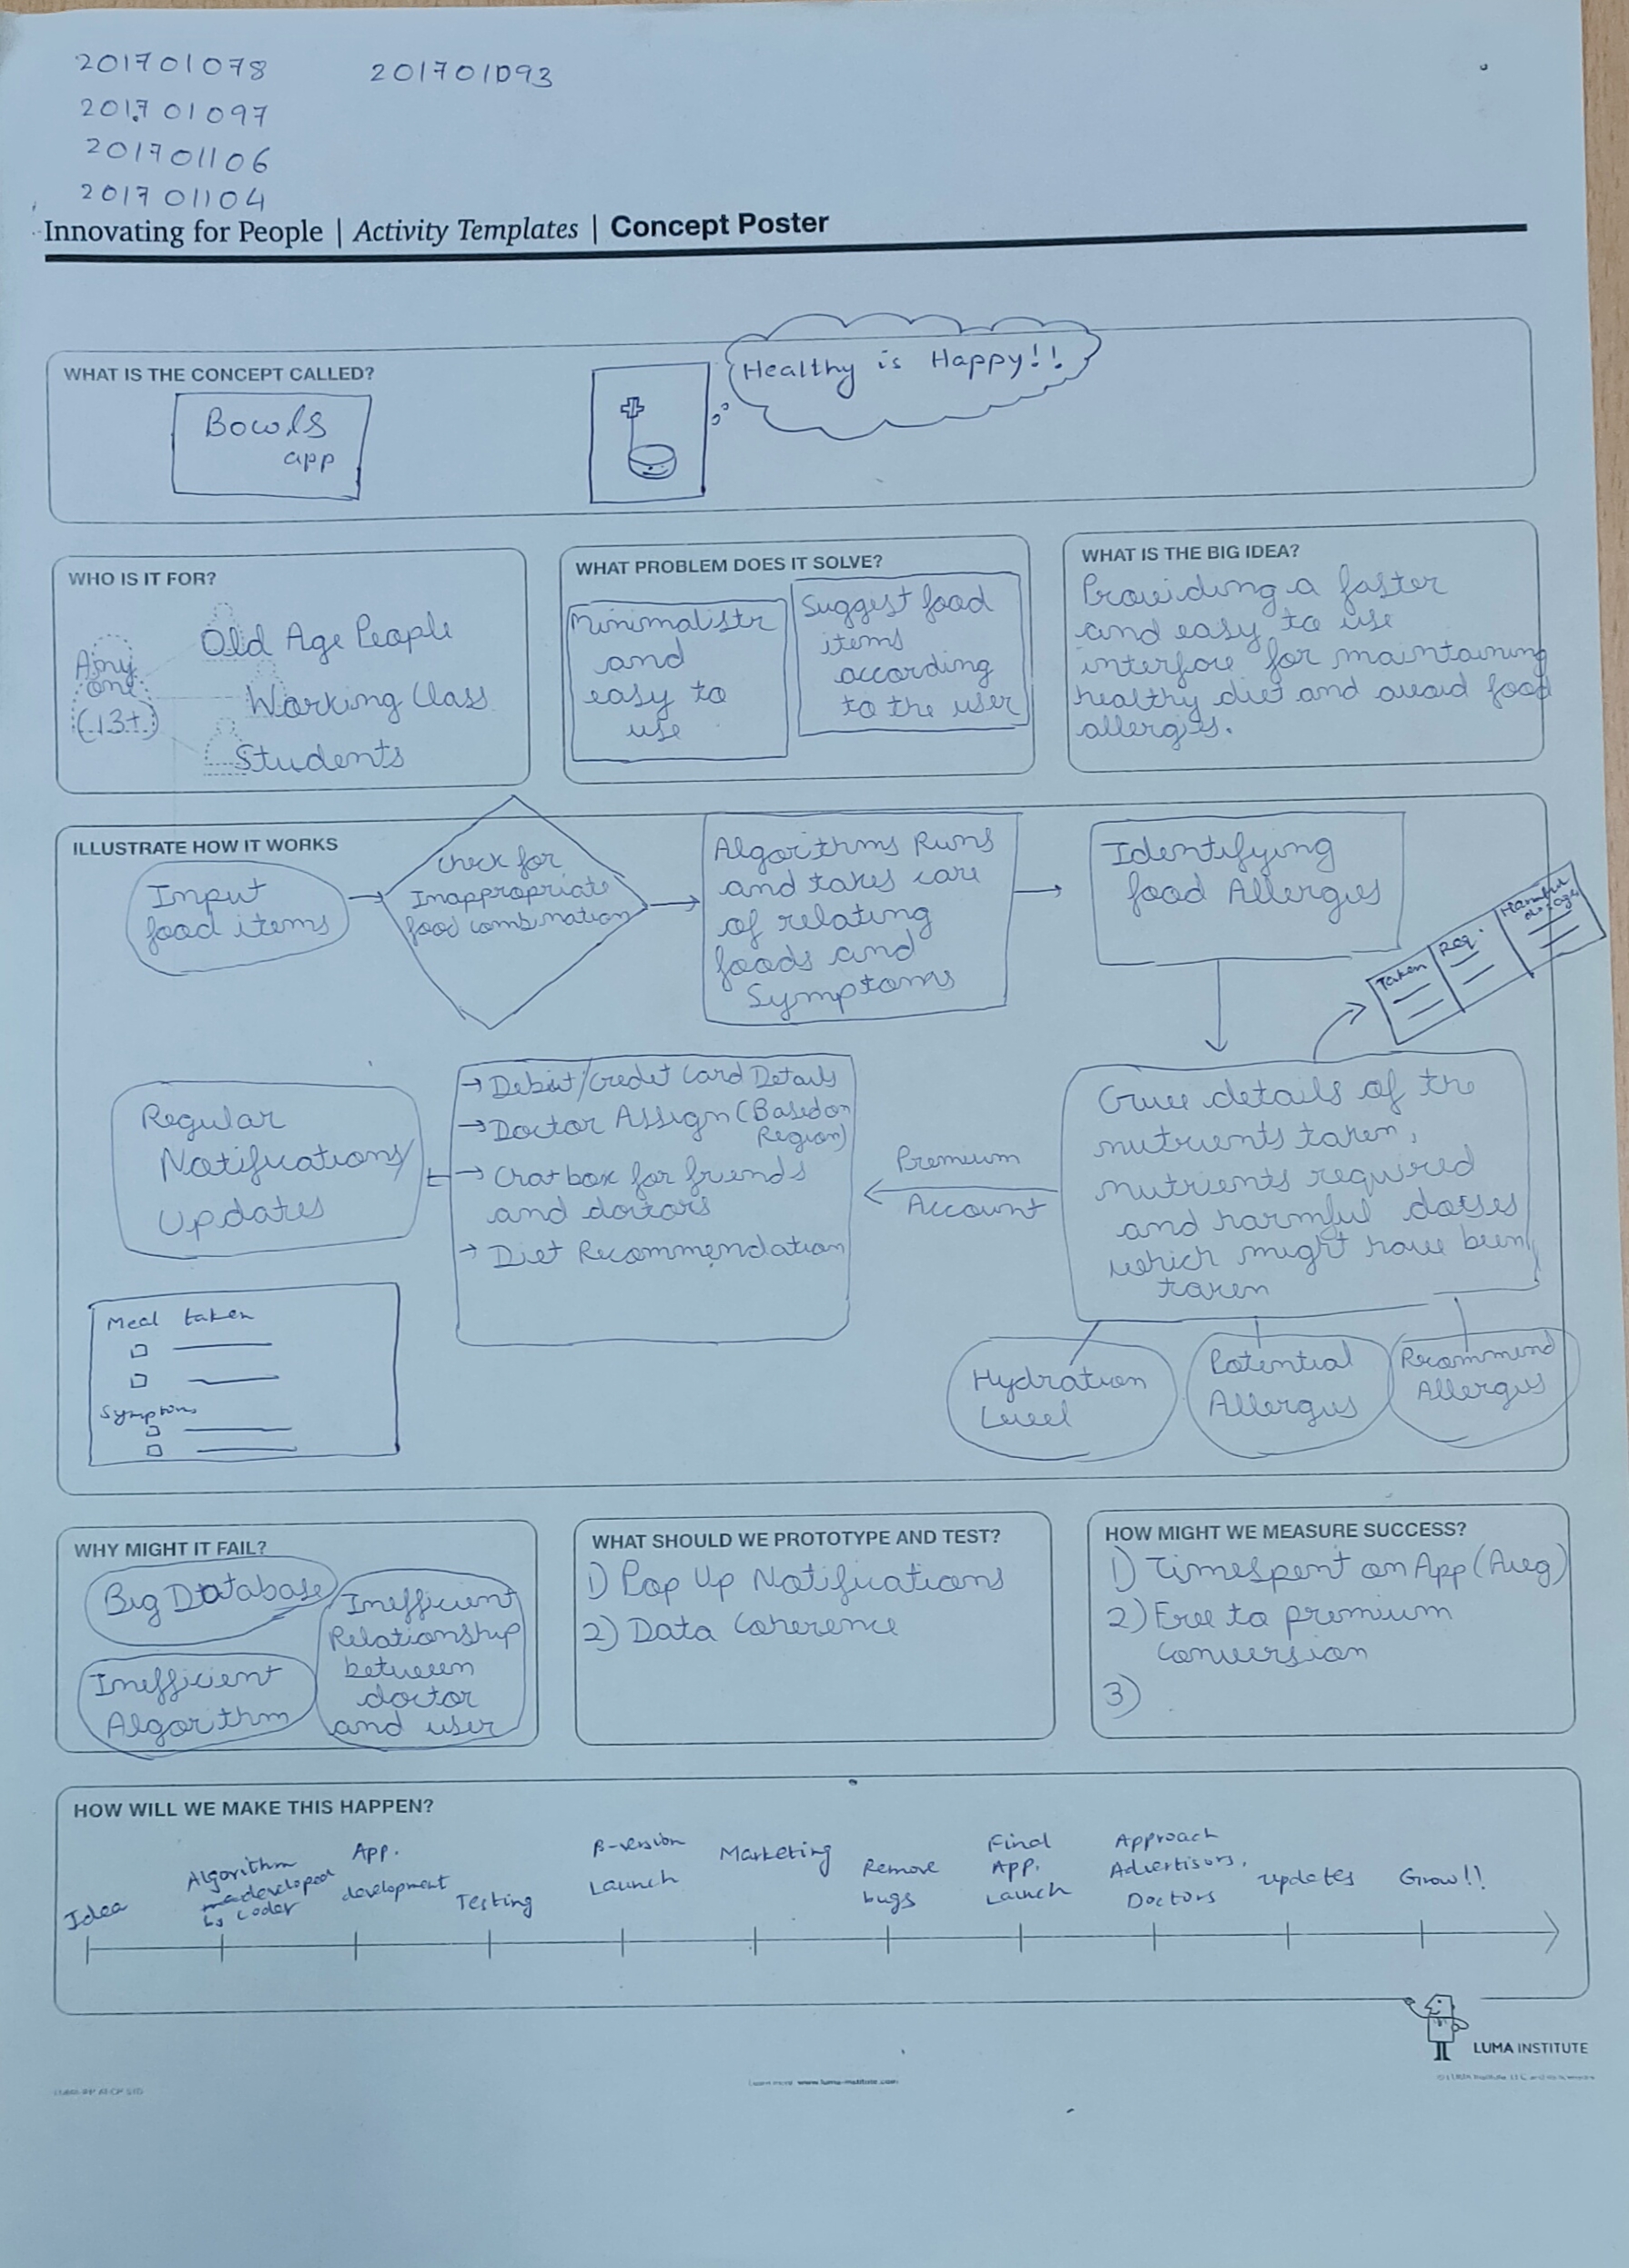 201701078
201701093
201701097
201701106
201701104
Innovating for People | Activity Templates | Concept Poster
WHAT IS THE CONCEPT CALLED?
Bowls
app
Healthy is Happy!!
WHO IS IT FOR?
Any
one
(13+)
Old Age People
Working Class
Students
WHAT PROBLEM DOES IT SOLVE?
Minimalistic
and
easy to
use
Suggest food
items
according
to the user
WHAT IS THE BIG IDEA?
Providing a faster
and easy to use
interface for maintaining
healthy diet and avoid food
allergies.
ILLUSTRATE HOW IT WORKS
Input
food items
Check for
Inappropriate
food combination
Algorithms Runs
and takes care
of relating
foods and
Symptoms
Identifying
food Allergies
Taken
Req.
Harmful
Give details of the
nutrients taken,
nutrients required
and harmful doses
which might have been
taken
Hydration
Level
Potential
Allergies
Recommend
Allergies
Premium
Account
→ Debit/Credit Card Details
→ Doctor Assign (Based on
Region)
→ Chatbox for friends
and doctors
→ Diet Recommendation
Regular
Notifications/
Updates
Meal taken
Symptoms
WHY MIGHT IT FAIL?
Big Database
Inefficient
Algorithm
Inefficient
Relationship
between
doctor
and user
WHAT SHOULD WE PROTOTYPE AND TEST?
1) Pop Up Notifications
2) Data Coherence
HOW MIGHT WE MEASURE SUCCESS?
1) Timespent on App (Avg)
2) Free to premium
conversion
3)
HOW WILL WE MAKE THIS HAPPEN?
Idea
Algorithm
developed
by coder
App.
development
Testing
β-version
Launch
Marketing
Remove
bugs
Final
App.
Launch
Approach
Advertisors,
Doctors
updates
Grow!!
LUMA INSTITUTE
Learn more www.luma-institute.com